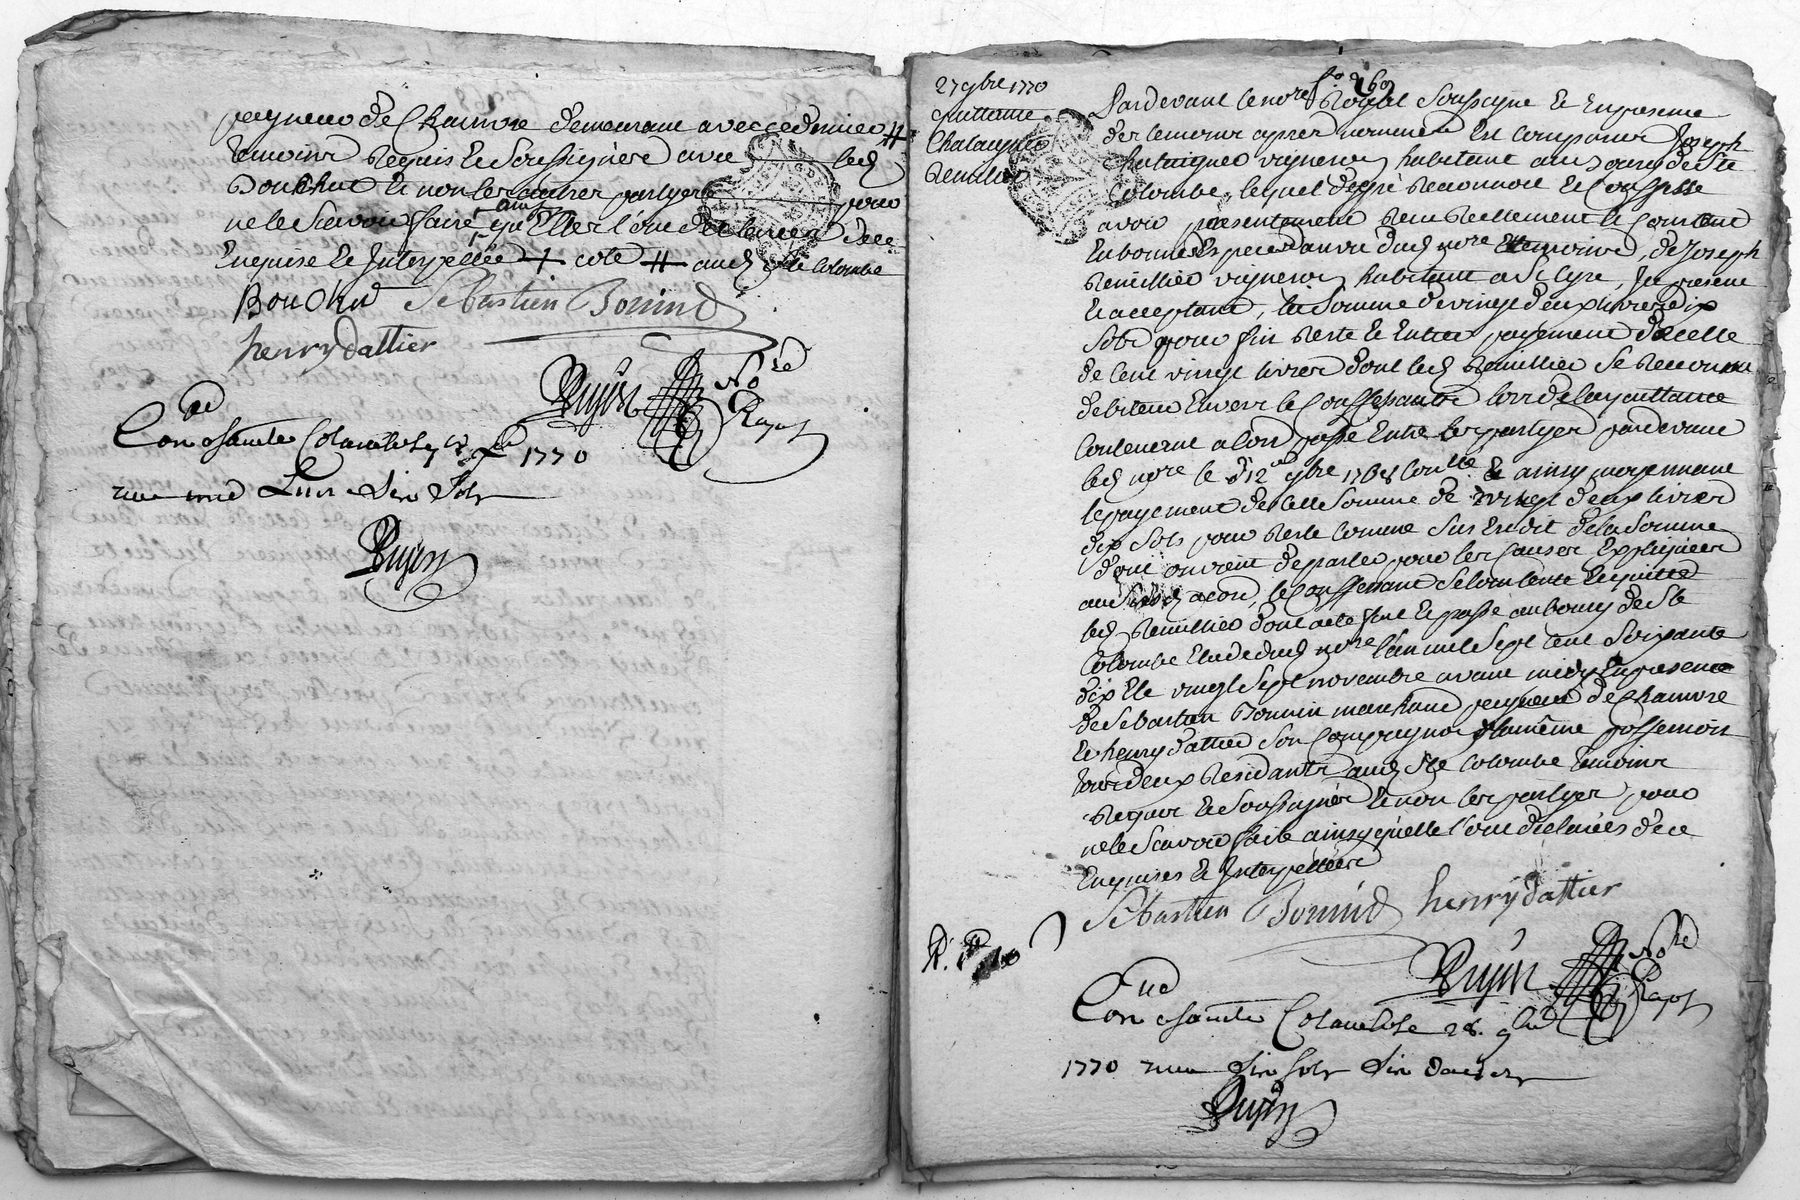 peigneur de Chanvre demeurant avec ce dernier #
temoins Requis et Soussignés avec led
Bouchut et non les autres partyes pour
ne le Scavoir faire ainsy qu'Elles l'ont Declaré de ce
Enquise et Interpellée + cote # aud Ste Colombe
Bouchu Sebastien Bonnind
henry dattier
Dujon No.re Royal
Con.le a Sainte Colombe 1770
reçu une Livre Dix Sols
Dujon
27 9bre 1770
Quittance
Chataignier
Remilier
Pardevant le no.re Royal Soussigné Et En presence
des temoins apres nommés Est Comparu Joseph
Chataignier vigneron habitant au Bourg de Ste
Colombe, lequel de gré Reconnoit Et Confesse
avoir presentement Reçu Reellement Et Comptant
En bonnes Especes au vu dud no.re Et temoins, de Joseph
Remillier vigneron habitant a St Cyr, Icy present
Et acceptant, la Somme de vingt deux livres dix
Sols pour fin Reste Et Entier payement de celle
de Cent vingt livres dont led Remillier Se Reconnu
debiteur Envers le Confessant lors de la quittance
Contenant accord passé Entre les partyes pardevant
led no.re le 12 9bre 1768 Con.llé Et ainsy moyennant
le payement de cette Somme de vingt deux livres
dix Sols pour Reste Comme Sus Est dit de la Somme
dont on vient de parler pour les Causes Expliquées
aud accord, le Confessant Se Contente Et quitte
led Remillier dont acte fait Et passé au bourg de Ste
Colombe Etude dud no.re l'an mil Sept Cent Soixante
dix Et le vingt Sept novembre avant midy En presence
de Sebastien Bonnin marchand peigneur de Chanvre
Et henry dattier Son Compagnon de la même profession
tous deux Residants aud Ste Colombe temoins
Requis Et Soussignés Et non les partyes pour
ne le Scavoir faire ainsy qu'elles l'ont declarés de ce
Enquises Et Interpellées
Sebastien Bonnind henry dattier
Dujon No.re Royal
Con.llé a Sainte Colombe 28. 9bre
1770 reçu Dix Sols Six deniers
Dujon